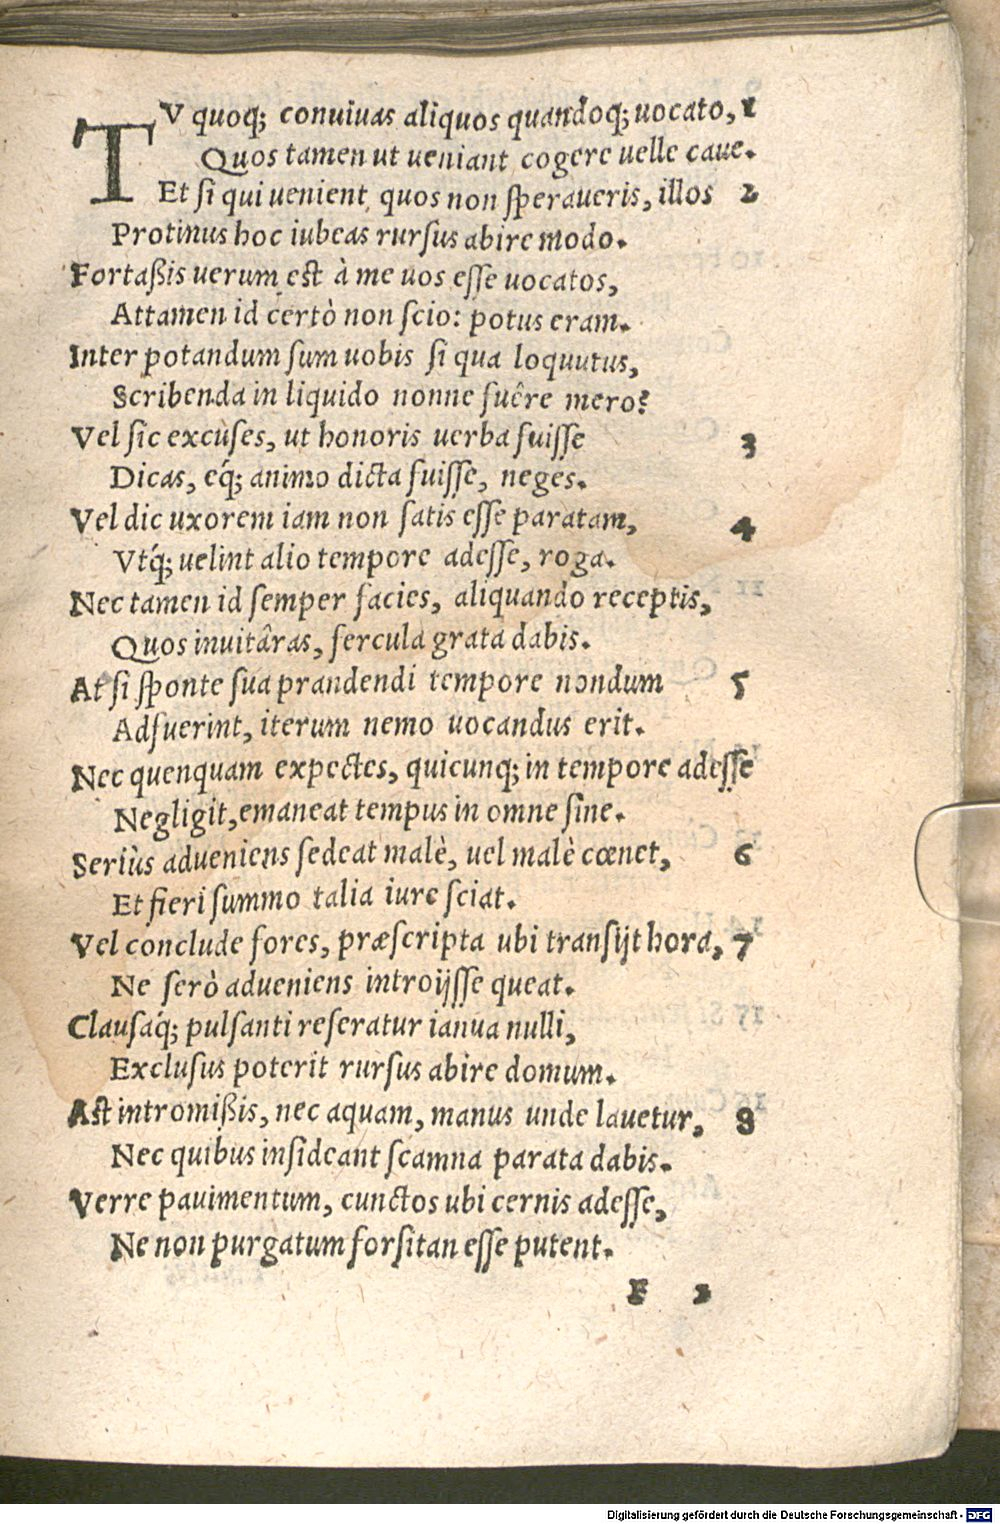 TV quoq; conuiuas aliquos quandoq; uocato, 1
Quos tamen ut ueniant cogere uelle caue.
Et si qui uenient quos non speraueris, illos 2
Protinus hoc iubeas rursus abire modo.
Fortaßis uerum est à me uos esse uocatos,
Attamen id certò non scio: potus eram.
Inter potandum sum uobis si qua loquutus,
Scribenda in liquido nonne fuêre mero?
Vel sic excuses, ut honoris uerba fuisse 3
Dicas, eq́; animo dicta fuisse, neges.
Vel dic uxorem iam non satis esse paratam, 4
Vtq́; uelint alio tempore adesse, roga.
Nec tamen id semper facies, aliquando receptis,
Quos inuitâras, fercula grata dabis.
At si sponte sua prandendi tempore nondum 5
Adfuerint, iterum nemo uocandus erit.
Nec quenquam expectes, quicunq; in tempore adesse
Negligit, emaneat tempus in omne sine.
Seriùs adueniens sedeat malè, uel malè cœnet, 6
Et fieri summo talia iure sciat.
Vel conclude fores, præscripta ubi transijt hora, 7
Ne serò adueniens introijsse queat.
Clausaq́; pulsanti reseratur ianua nulli,
Exclusus poterit rursus abire domum.
Ast intromißis, nec aquam, manus unde lauetur, 8
Nec quibus insideant scamna parata dabis.
Verre pauimentum, cunctos ubi cernis adesse,
Ne non purgatum forsitan esse putent.
F 2
Digitalisierung gefördert durch die Deutsche Forschungsgemeinschaft - DFG